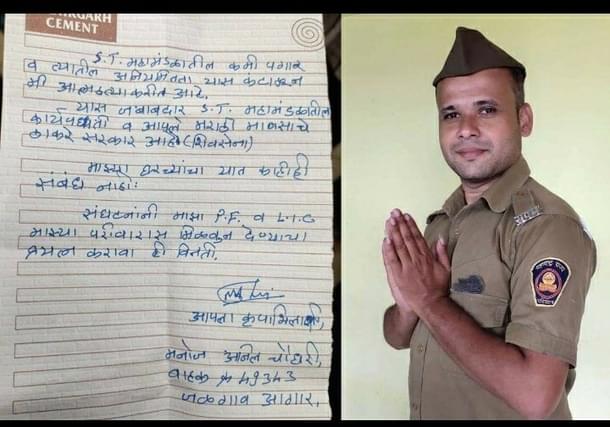 RGARH
CEMENT
S.T. महामंडळातील कमी पगार
व त्यातील अनियमितता यास कंटाळून
मी आत्महत्या करीत आहे.
यास जबाबदार S.T. महामंडळातील
कार्यपध्दती व आपले मराठी माणसाचे
ठाकरे सरकार आहे (शिवसेना)
माझ्या घरच्यांचा यात काहीही
संबंध नाही.
संघटनांनी माझा P.F. व L.I.C
माझ्या परीवारास मिळवुन देण्याचा
प्रयत्न करावा ही विनंती.
आपला कृपाभिलाषी,
मनोज अनिल चौधरी,
वाहक 49343
जळगाव आगार.